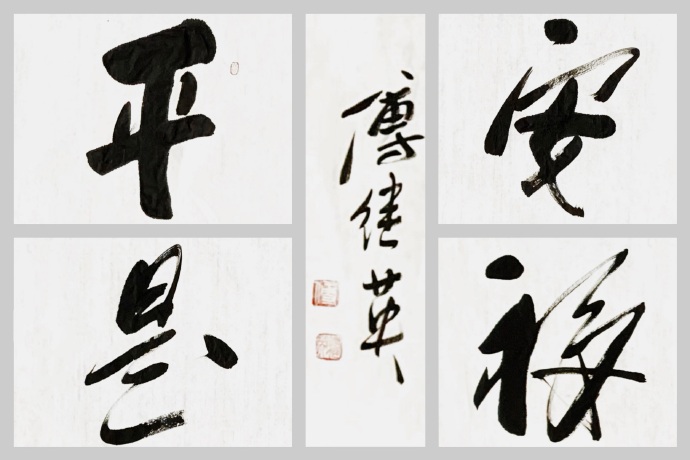 平
安
是
福
傅
英